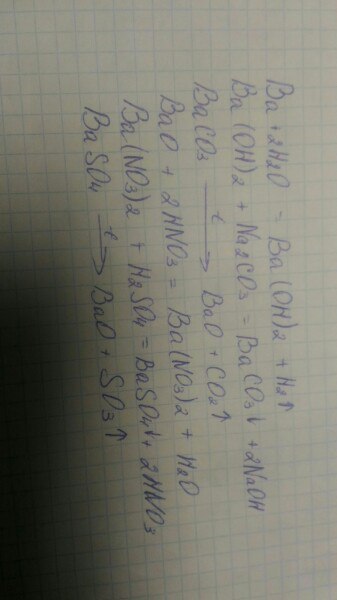 Ba + 2H2O = Ba(OH)2 + H2↑
Ba(OH)2 + Na2CO3 = BaCO3↓ + 2NaOH
BaCO3 t→ BaO + CO2↑
BaO + 2HNO3 = Ba(NO3)2 + H2O
Ba(NO3)2 + H2SO4 = BaSO4↓ + 2HNO3
BaSO4 t→ BaO + SO3↑